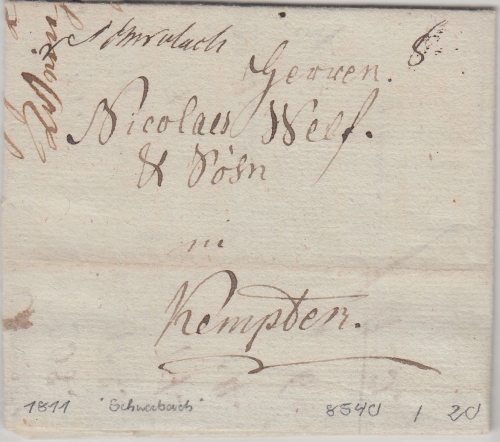 Schwabach
8
Herren.
Nicolaus Wolf.
& Söhn
in
Kempten.
1811 "Schwabach" 8540 1 20